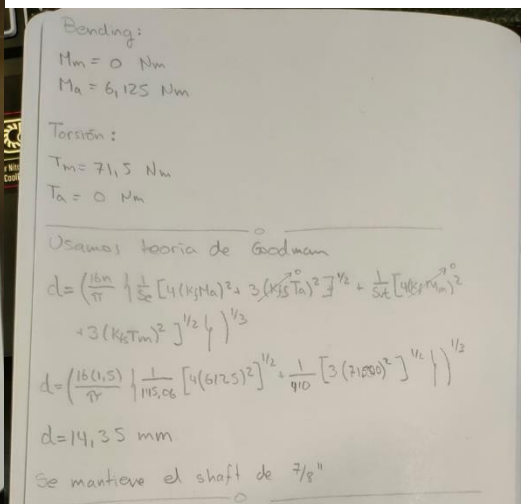 Bending:
Mm = 0 Nm
Ma = 6,125 Nm
Torsión:
Tm = 71,5 Nm
Ta = 0 Nm
Usamos teoría de Goodman
d = (16n/π {1/Se [4(KfMa)² + 3(KfsTa)²]^1/2 + 1/Sut [4(KfMm)²
+ 3(KfsTm)²]^1/2})^1/3
d = (16(1,5)/π {1/145,06 [4(6125)²]^1/2 + 1/410 [3(71500)²]^1/2})^1/3
d = 14,35 mm
Se mantiene el shaft de 7/8"